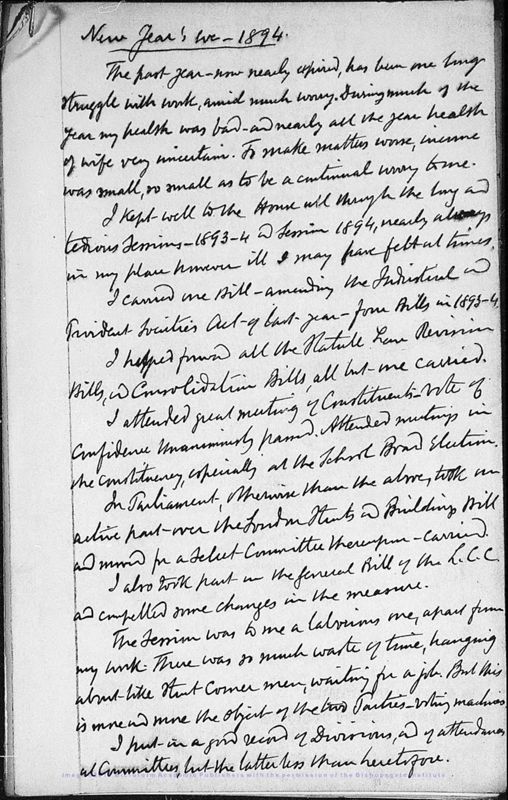 New Year's Eve – 1894.
The past year – now nearly expired, has been one long
struggle with work, amid much worry. During much of the
year my health was bad – and nearly all the year health
of wife very uncertain. To make matters worse, income
was small, so small as to be a continual worry to me.
I kept well to the House all through the long and
tedious Sessions – 1893-4 and Session 1894, nearly always
in my place however ill I may have felt at times.
I carried one Bill – amending the Industrial and
Provident Societies Act – of last year – four Bills in 1893-4,
I helped forward all the Statute Law Revision
Bills, and Consolidation Bills, all but one carried.
I attended great meeting of Constituents – Vote of
Confidence Unanimously passed. Attended meetings in
the constituency, especially at the School Board Election.
In Parliament, otherwise than the above, took an
active part – over the London Streets and Buildings Bill
and moved for a Select Committee thereupon – Carried.
I also took part in the General Bill of the L.C.C.
and compelled some changes in the measure.
The Session was to me a laborious one, apart from
my work. There was so much waste of time, hanging
about like Street Corner men, waiting for a job. But this
is more and more the object of the two Parties – Voting machines.
I put in a good record of Divisions, and of attendances
at Committees, but the latter less than heretofore.
with the permission of the Bishopsgate Institute